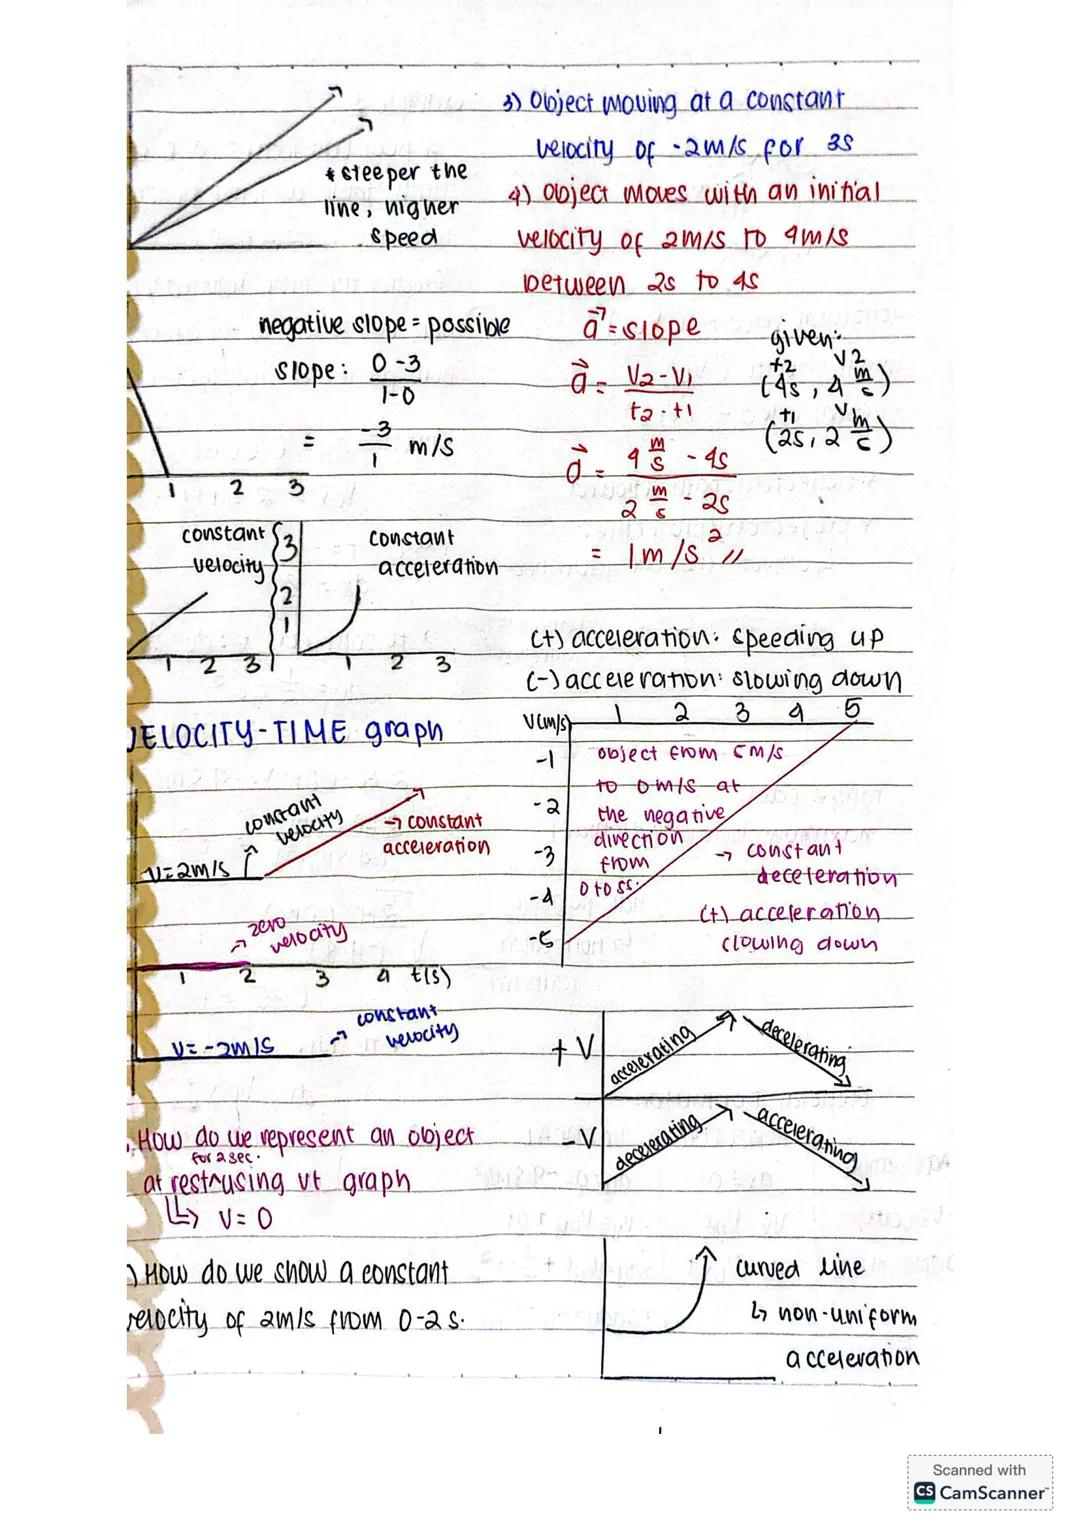 * steeper the
line, higher
speed
negative slope = possible
slope: 0 - 3
1 - 0
= -3
1 m/s
1 2 3
constant
velocity
3
2
1
1 2 3
constant
acceleration
1 2 3
VELOCITY-TIME graph
constant
velocity
→ constant
acceleration
V=2m/s
zero
velocity
1 2 3 4 t(s)
constant
velocity
V= -2m/s
How do we represent an object
for 2 sec.
at rest^using vt graph
↳ V= 0
) How do we show a constant
velocity of 2m/s from 0-2 s.
3) Object moving at a constant
velocity of -2m/s for 3s
4) Object moves with an initial
velocity of 2m/s to 4m/s
between 2s to 4s
a = slope
given:
t2 V2
(4s, 4 m/s)
t1 V1
(2s, 2 m/s)
a = V2 - V1
t2 - t1
a = 4 m/s - 4s
2 m/s - 2s
= 1m/s² //
(+) acceleration: speeding up
(-) acceleration: slowing down
V(m/s) 1 2 3 4 5
-1
-2
-3
-4
-5
object from 5m/s
to 0m/s at
the negative
direction
from
0 to 5s.
→ constant
deceleration
(+) acceleration
slowing down
+ V
accelerating
decelerating
- V
decelerating
accelerating
curved line
↳ non-uniform
acceleration
Scanned with
CS CamScanner